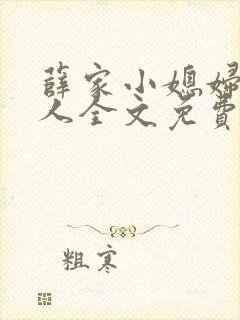 薛家小媳妇
人全文免费
粗寒